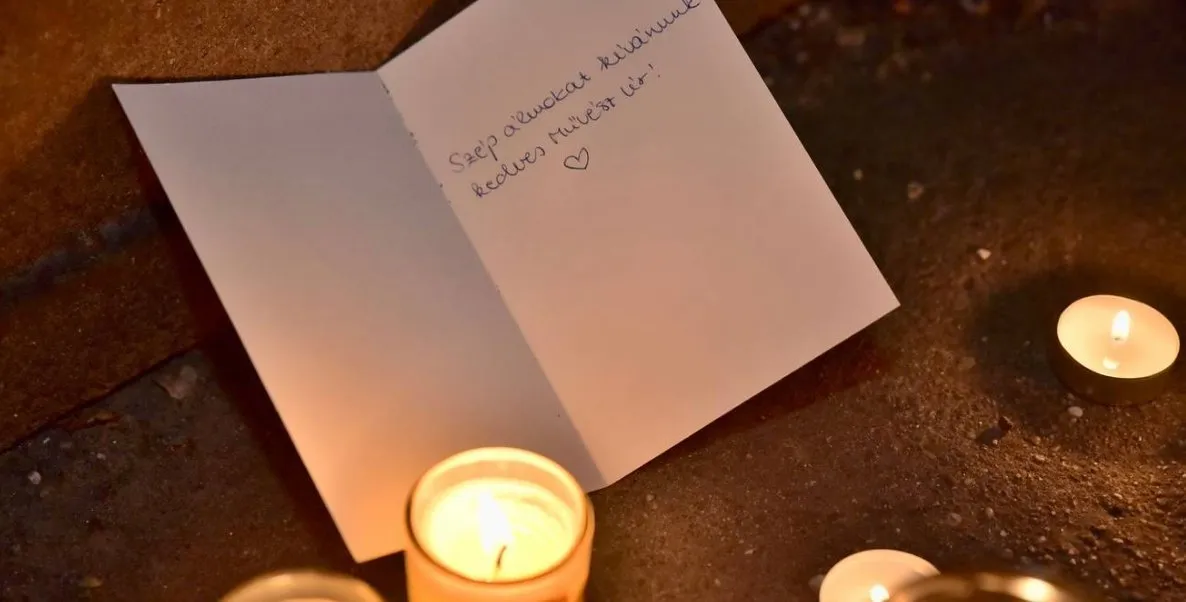 Szép álmokat kívánunk
kedves Művész Úr!